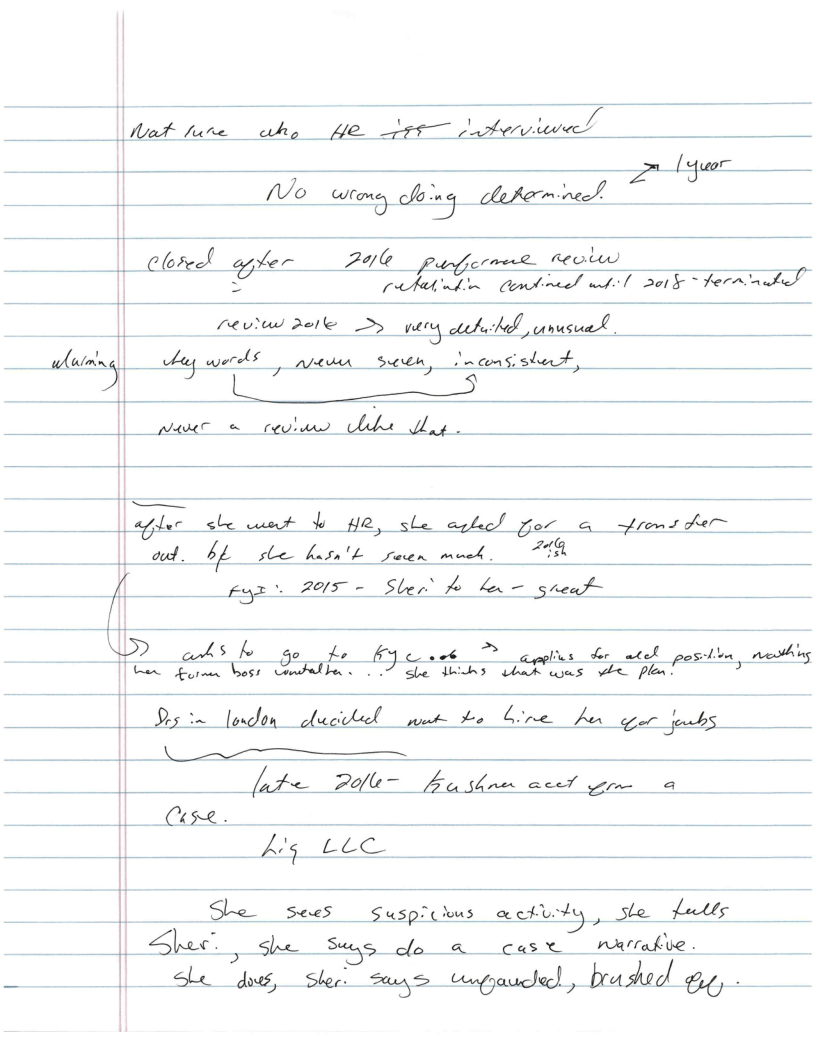 Not sure who HR interviewed
↗ 1 year
No wrong doing determined.
closed after 2016 performance review
retaliation continued until 2018 - terminated
review 2016 → very detailed, unusual.
alarming key words, never seen, inconsistent,
Never a review like that.
after she went to HR, she asked for a transfer
out. bf she hasn't seen much. 2016 ish
FYI: 2015 - Sheri to her - great
→ asks to go to KYC → applies for old position, nothing
her former boss ... she thinks that was the plan.
Drs in london decided not to hire her for jobs
late 2016 - Kushner acct from a
Case.
Liq LLC
She sees suspicious activity, she tells
Sheri, she says do a case narrative.
She does, Sheri says unfounded, brushed off.